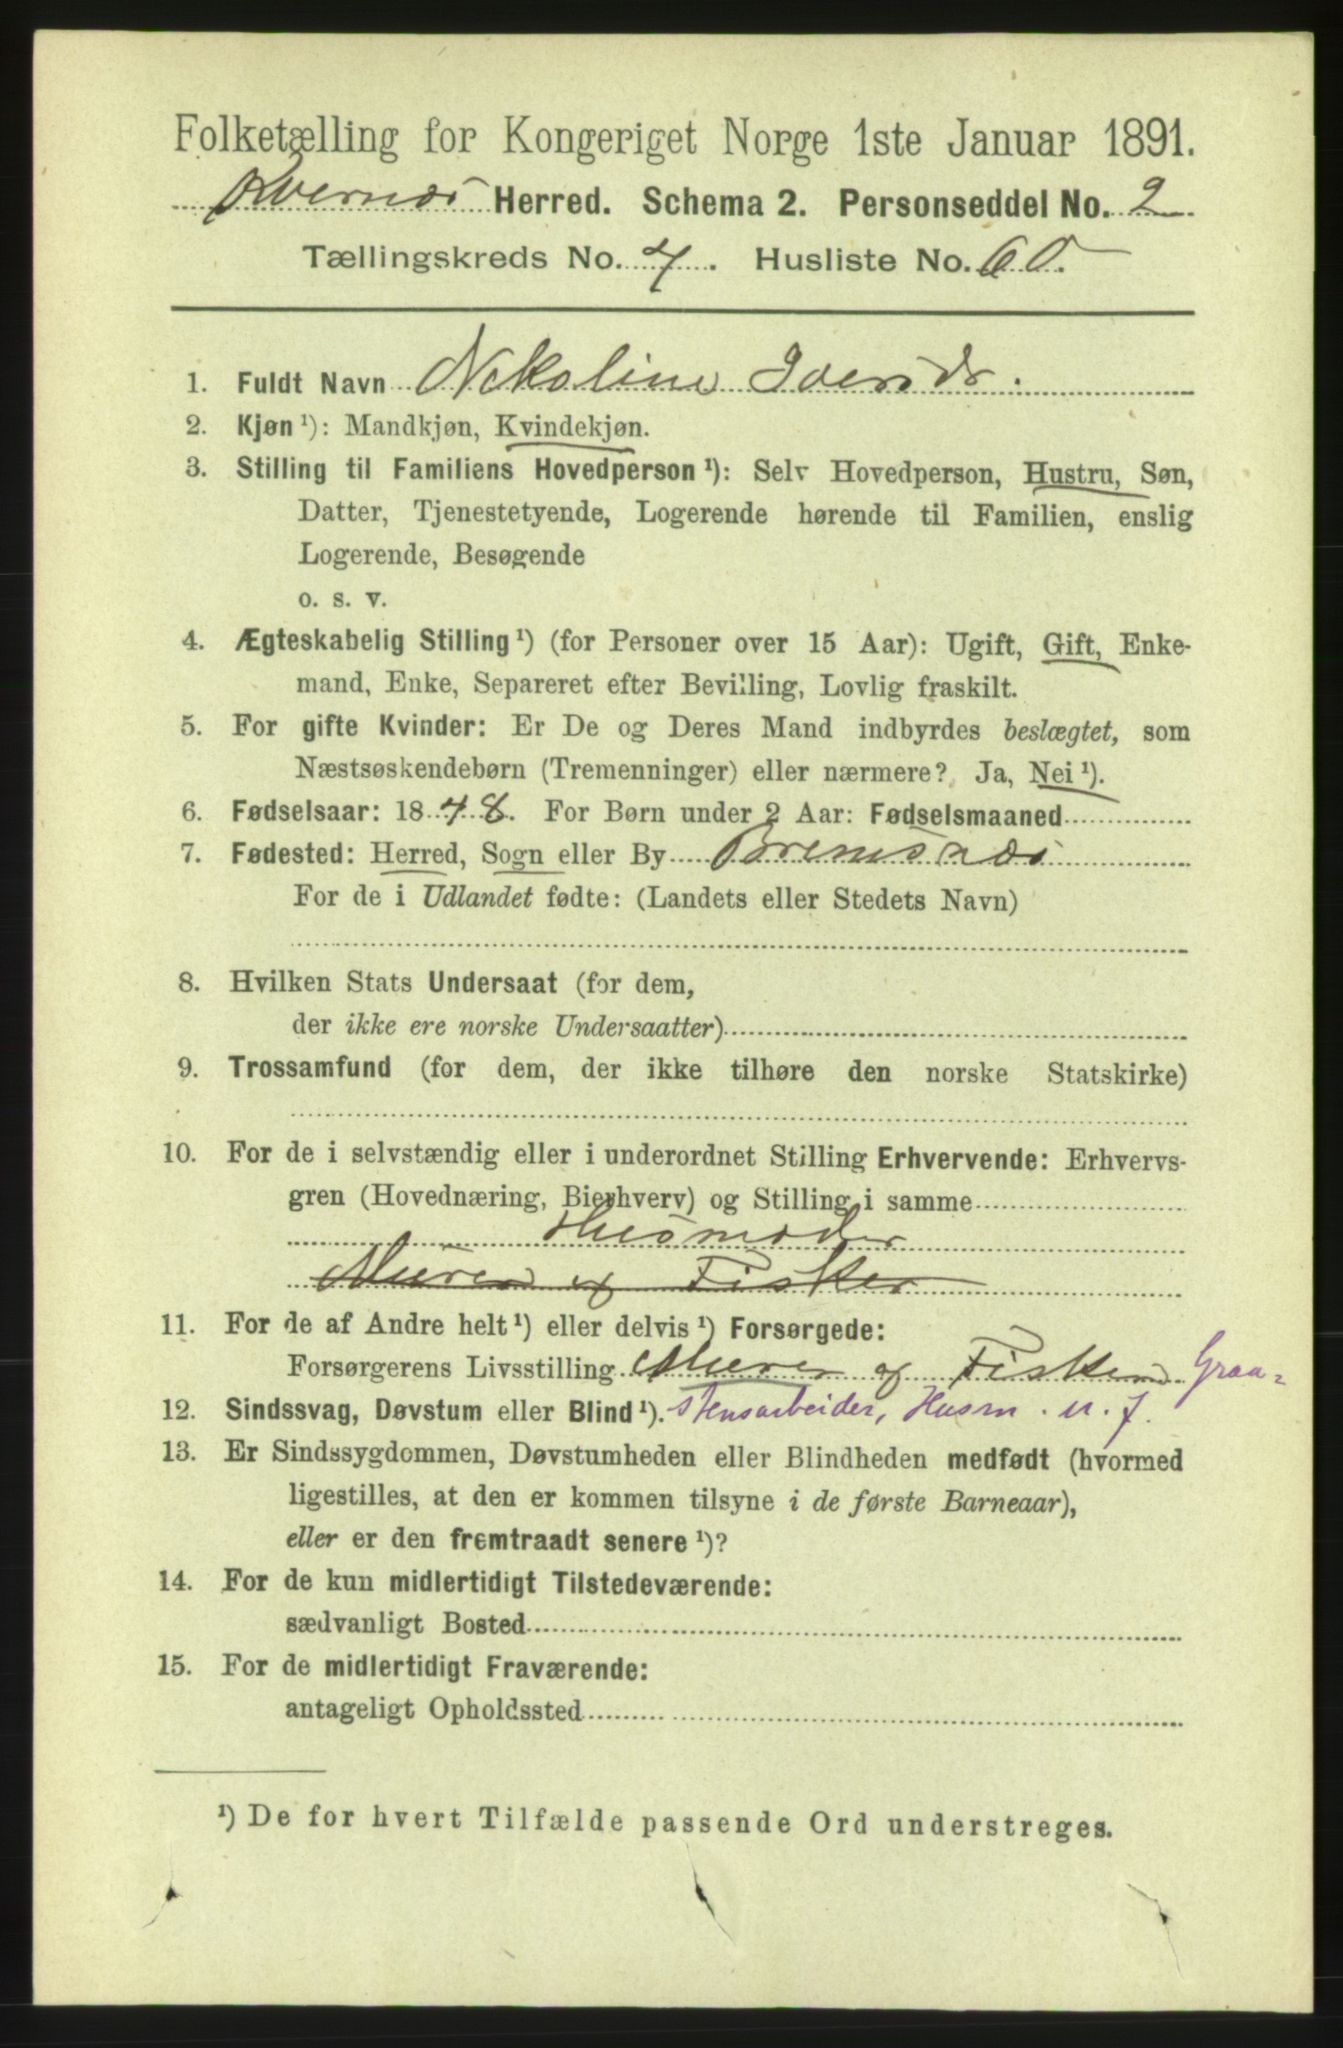 Folketælling for Kongeriget Norge 1ste Januar 1891.
Kvernæs Herred. Schema 2. Personseddel No. 2
Tællingskreds No. 4. Husliste No. 60.
1. Fuldt Navn Nekoline Iversdr.
2. Kjøn ¹): Mandkjøn, Kvindekjøn.
3. Stilling til Familiens Hovedperson ¹): Selv Hovedperson, Hustru, Søn,
Datter, Tjenestetyende, Logerende hørende til Familien, enslig
Logerende, Besøgende
o. s. v.
4. Ægteskabelig Stilling ¹) (for Personer over 15 Aar): Ugift, Gift, Enke-
mand, Enke, Separeret efter Bevilling, Lovlig fraskilt.
5. For gifte Kvinder: Er De og Deres Mand indbyrdes beslægtet, som
Næstsøskendebørn (Tremenninger) eller nærmere? Ja, Nei ¹).
6. Fødselsaar: 1848. For Børn under 2 Aar: Fødselsmaaned
7. Fødested: Herred, Sogn eller By Bremsnæs
For de i Udlandet fødte: (Landets eller Stedets Navn)
8. Hvilken Stats Undersaat (for dem,
der ikke ere norske Undersaatter)
9. Trossamfund (for dem, der ikke tilhøre den norske Statskirke)
10. For de i selvstændig eller i underordnet Stilling Erhvervende: Erhvervs-
gren (Hovednæring, Bierhverv) og Stilling i samme
Husmoder
Murer og Fisker
11. For de af Andre helt ¹) eller delvis ¹) Forsørgede:
Forsørgerens Livsstilling Murer og Fisker Graa-
12. Sindssvag, Døvstum eller Blind ¹). stensarbeider, Husm. u. J.
13. Er Sindssygdommen, Døvstumheden eller Blindheden medfødt (hvormed
ligestilles, at den er kommen tilsyne i de første Barneaar),
eller er den fremtraadt senere ¹)?
14. For de kun midlertidigt Tilstedeværende:
sædvanligt Bosted
15. For de midlertidigt Fraværende:
antageligt Opholdssted
¹) De for hvert Tilfælde passende Ord understreges.